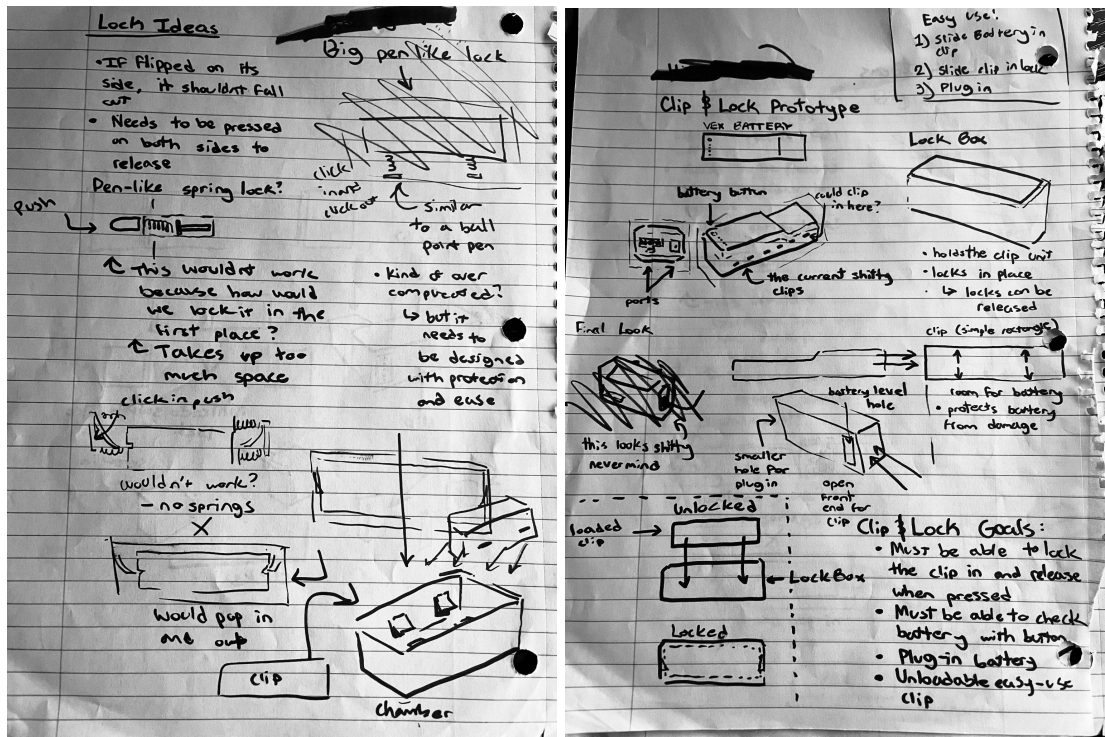 Lock Ideas
• If flipped on its
side, it shouldnt fall
out
• Needs to be pressed
on both sides to
release
Pen-like spring lock?
push
This wouldnt work
because how would
we lock it in the
first place?
Takes up too
much space
click in push
wouldn't work?
- no springs
Would pop in
and out
clip
Big pen like lock
click
in and
click out
similar
to a ball
point pen
• kind of over
complicated?
but it
needs to
be designed
with protection
and ease
chamber
Easy use!
1) Slide Battery in
clip
2) slide clip in lock
3) Plug in
Clip & Lock Prototype
VEX BATTERY
Lock Box
battery button
could clip
in here?
ports
the current shitty
clips
• holds the clip unit
• locks in place
• locks can be
released
Final Look
this looks shitty
nevermind
clip (simple rectangle)
room for battery
• protects battery
from damage
battery level
hole
smaller
hole for
plug in
open
front
end for
clip
unlocked
loaded
clip
Lock Box
Locked
Clip & Lock Goals:
• Must be able to lock
the clip in and release
when pressed
• Must be able to check
battery with button
• Plug-in battery
• Unloadable easy-use
clip